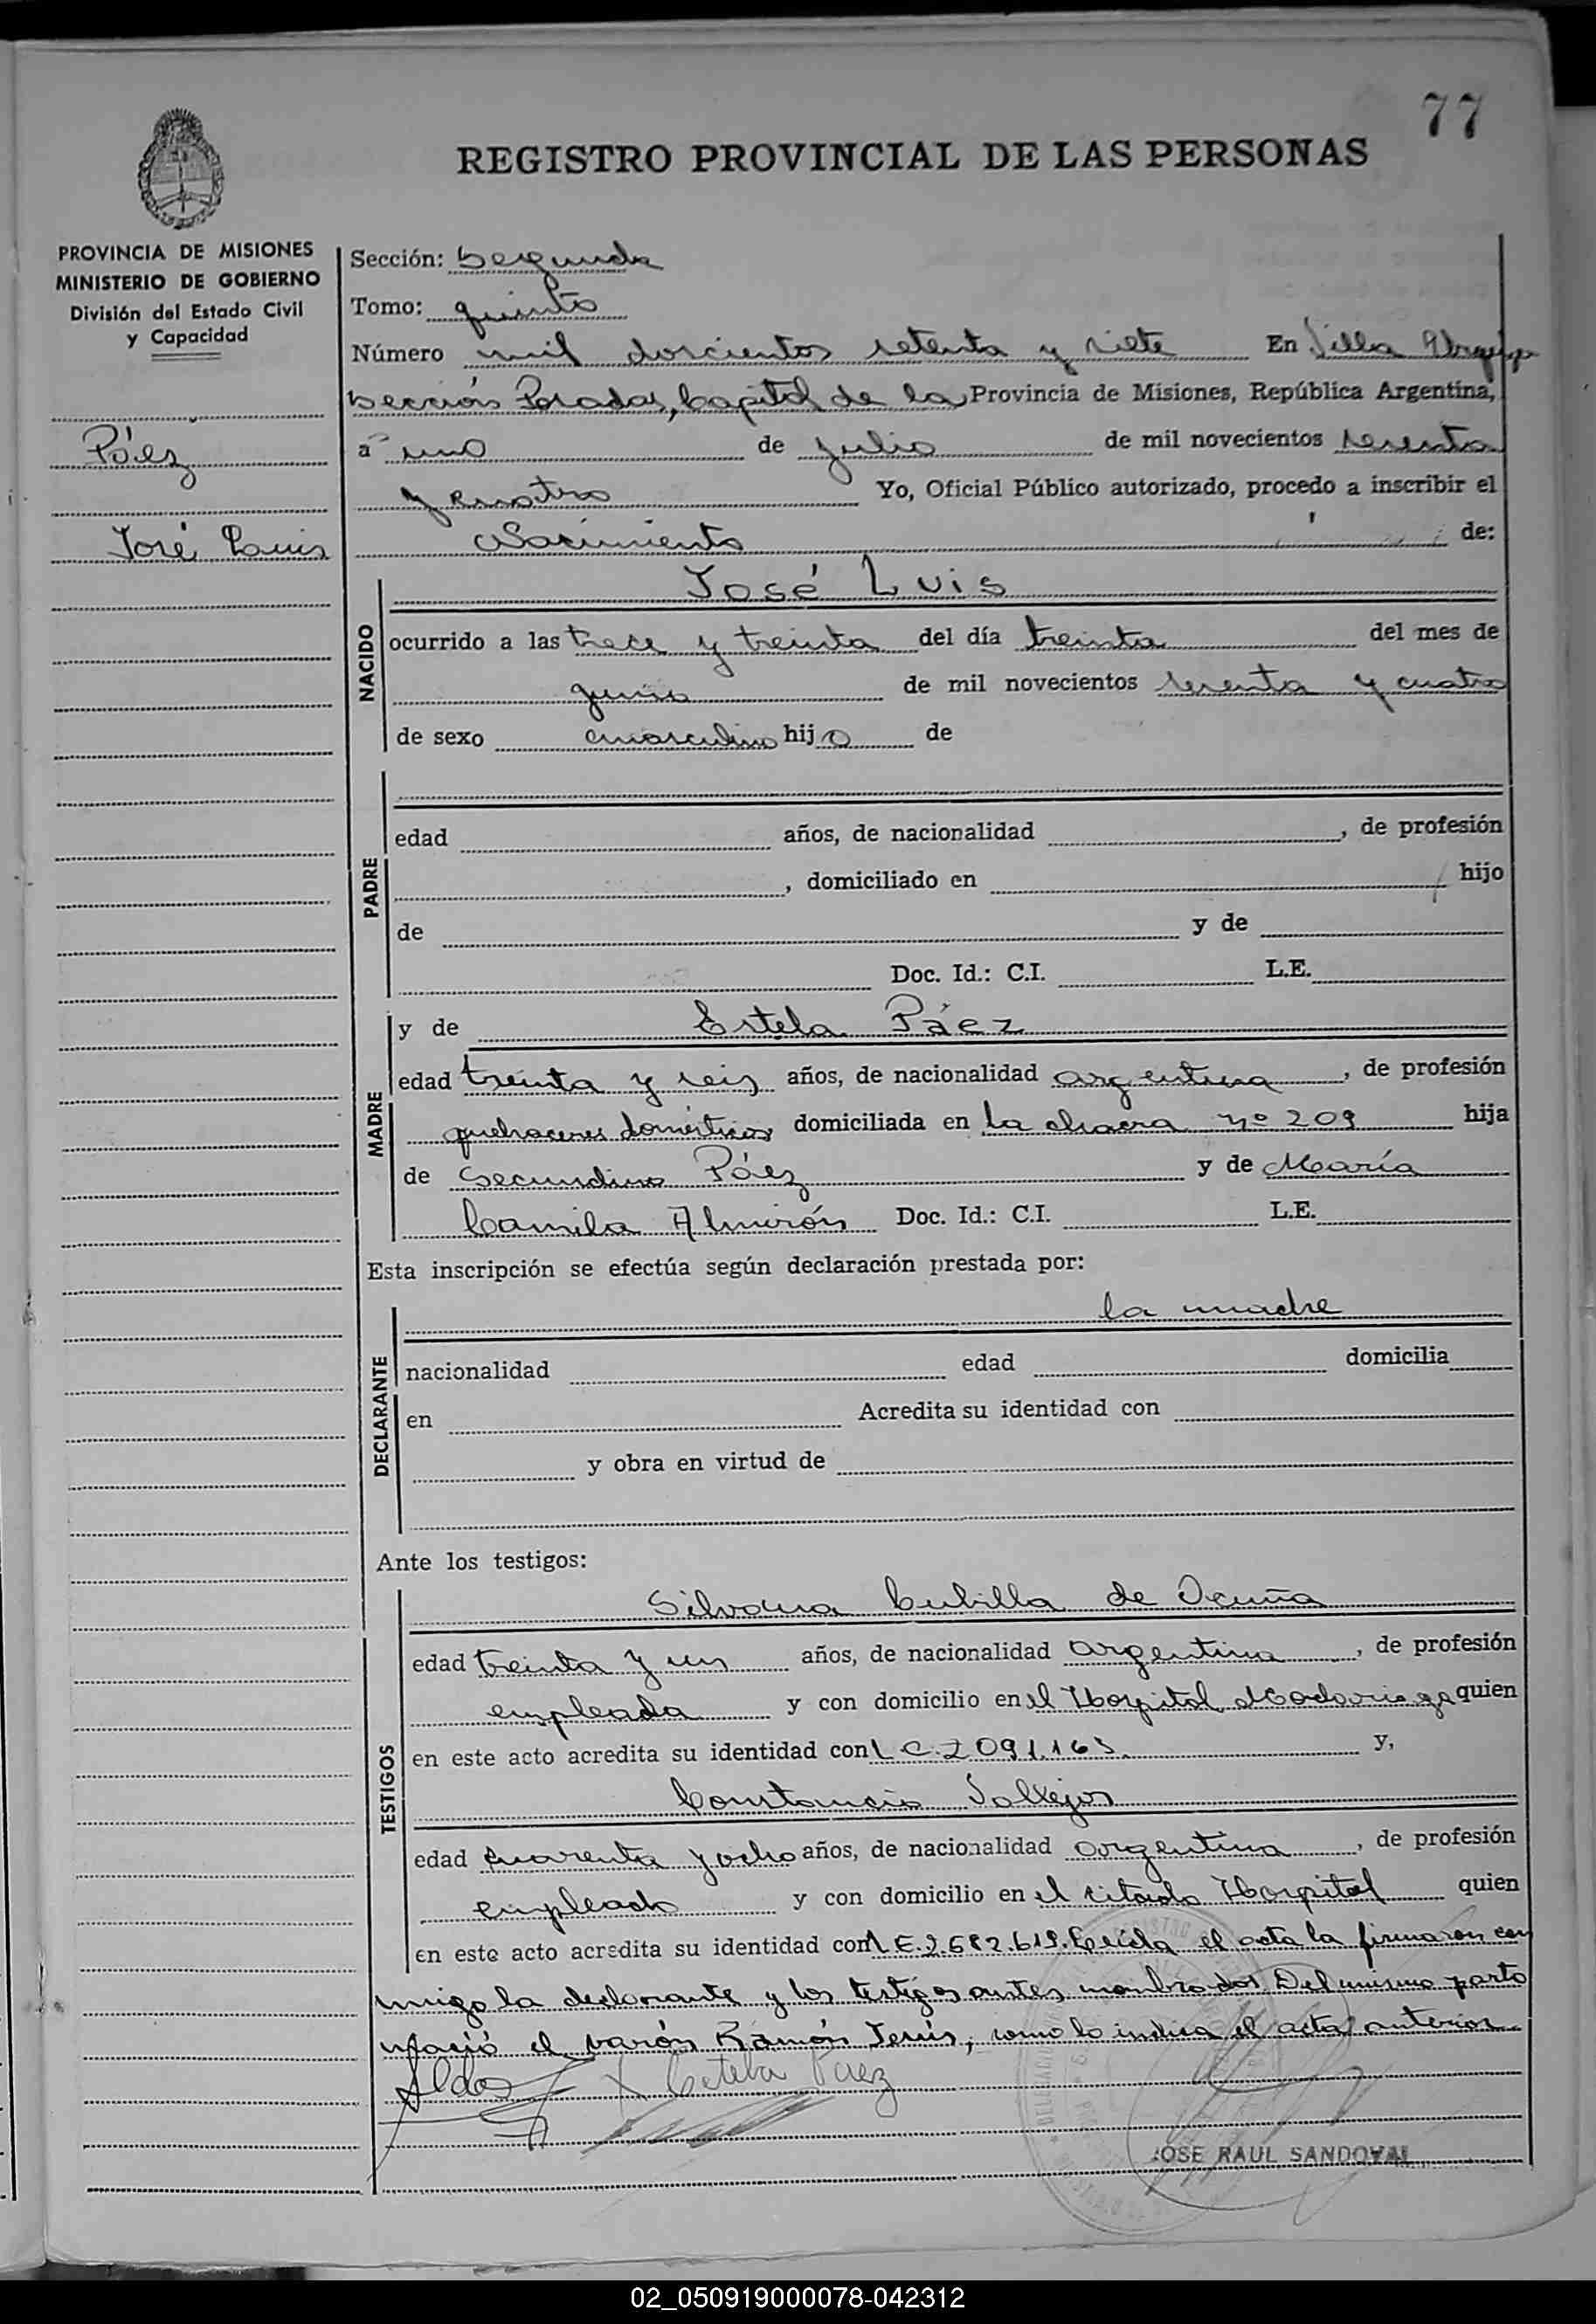 77
REGISTRO PROVINCIAL DE LAS PERSONAS
PROVINCIA DE MISIONES
MINISTERIO DE GOBIERNO
División del Estado Civil
y Capacidad
Páez
José Luis
Sección: Segunda
Tomo: quinto
Número mil doscientos setenta y siete En Villa Urquiza
Sección Posadas, Capital de la Provincia de Misiones, República Argentina,
a uno de julio de mil novecientos sesenta
y cuatro Yo, Oficial Público autorizado, procedo a inscribir el
Nacimiento de:
NACIDO
José Luis
ocurrido a las trece y treinta del día treinta del mes de
junio de mil novecientos sesenta y cuatro
de sexo masculino hijo de
PADRE
edad años, de nacionalidad , de profesión
, domiciliado en hijo
de y de
Doc. Id.: C.I. L.E.
MADRE
y de Estela Páez
edad treinta y seis años, de nacionalidad argentina, de profesión
quehaceres domésticos domiciliada en la chacra nº 209 hija
de Secundino Páez y de María
Camila Almirón Doc. Id.: C.I. L.E.
Esta inscripción se efectúa según declaración prestada por:
DECLARANTE
la madre
nacionalidad edad domicilia
en Acredita su identidad con
y obra en virtud de
Ante los testigos:
TESTIGOS
Silvana Cubilla de Acuña
edad treinta y un años, de nacionalidad argentina, de profesión
empleada y con domicilio en el Hospital Madariaga quien
en este acto acredita su identidad con L C. 2 091.163 y,
Constancio Vallejos
edad cuarenta y ocho años, de nacionalidad argentina, de profesión
empleado y con domicilio en el citado Hospital quien
en este acto acredita su identidad con L E. 2.682.619. Leída el acta la firmaron con
migo la declarante y los testigos antes nombrados Del mismo parto
nació el varón Ramón Jesús, como lo indica el acta anterior
Aldo
Estela Paez
JOSE RAUL SANDOVAL
02_050919000078-042312